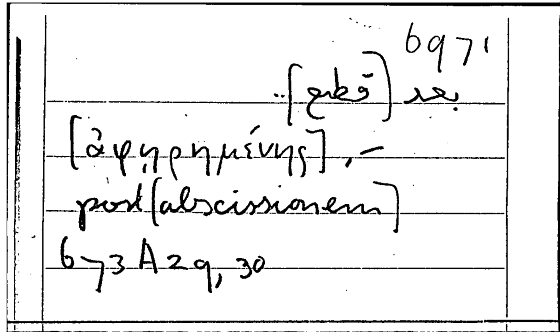 6971
بعد [قطع] ..
[ἀφῃρημένης], –
post [abscissionem]
673 A 29, 30